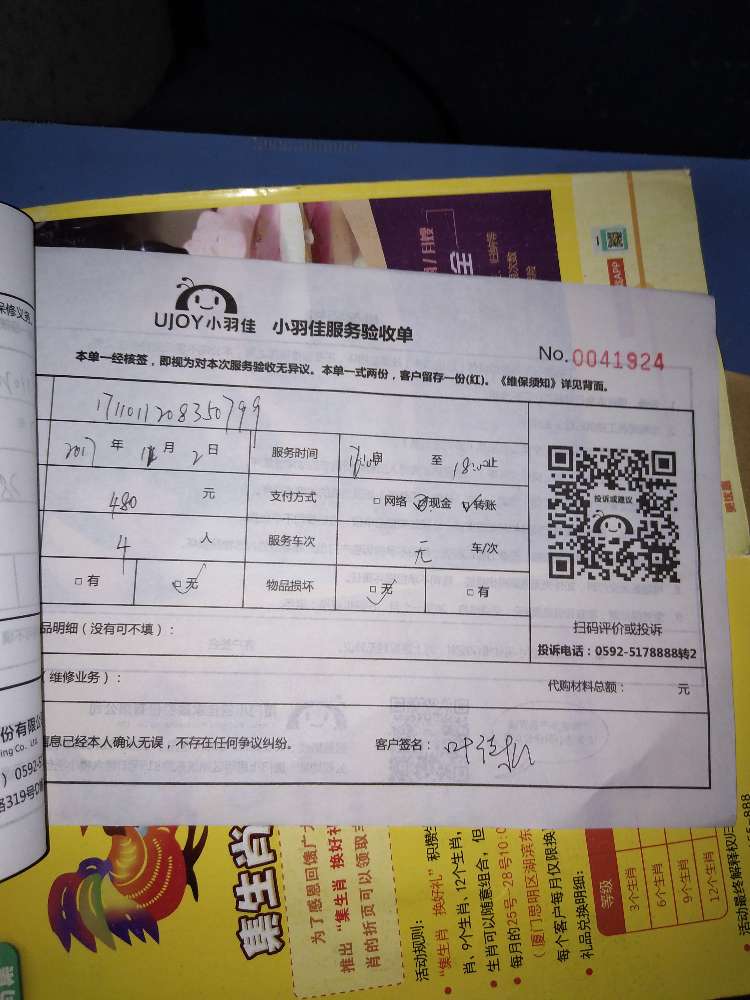 UJOY小羽佳 小羽佳服务验收单
No. 0041924
本单一经核签，即视为对本次服务验收无异议。本单一式两份，客户留存一份(红)。《维保须知》详见背面。
1711011208350799
2017 年 月 2 日 服务时间 至 18:00止
480 元 支付方式 □网络 □现金 □转账
4 人 服务车次 无 车/次
□有 □无 物品损坏 □无 □有
品明细（没有可不填）：
投诉或建议
扫码评价或投诉
投诉电话：0592-5178888转2
（维修业务）：
代购材料总额： 元
信息已经本人确认无误，不存在任何争议纠纷。
客户签名：
保修义务
份有限公
ing Co., Ltd.
) 0592-5
路319号
集生肖
为了感恩回馈广
推出“集生肖 换好礼
肖的折页可以领取
活动规则：
“集生肖 换好礼”积攒
肖、9个生肖、12个生肖，
生肖可以随意组合，但
每月的25号-28号10:0
（厦门思明区湖滨东
每个客户每月仅限换
礼品兑换明细：
等级
3个生肖
6个生肖
9个生肖
12个生肖
活动最终解释权归
APP